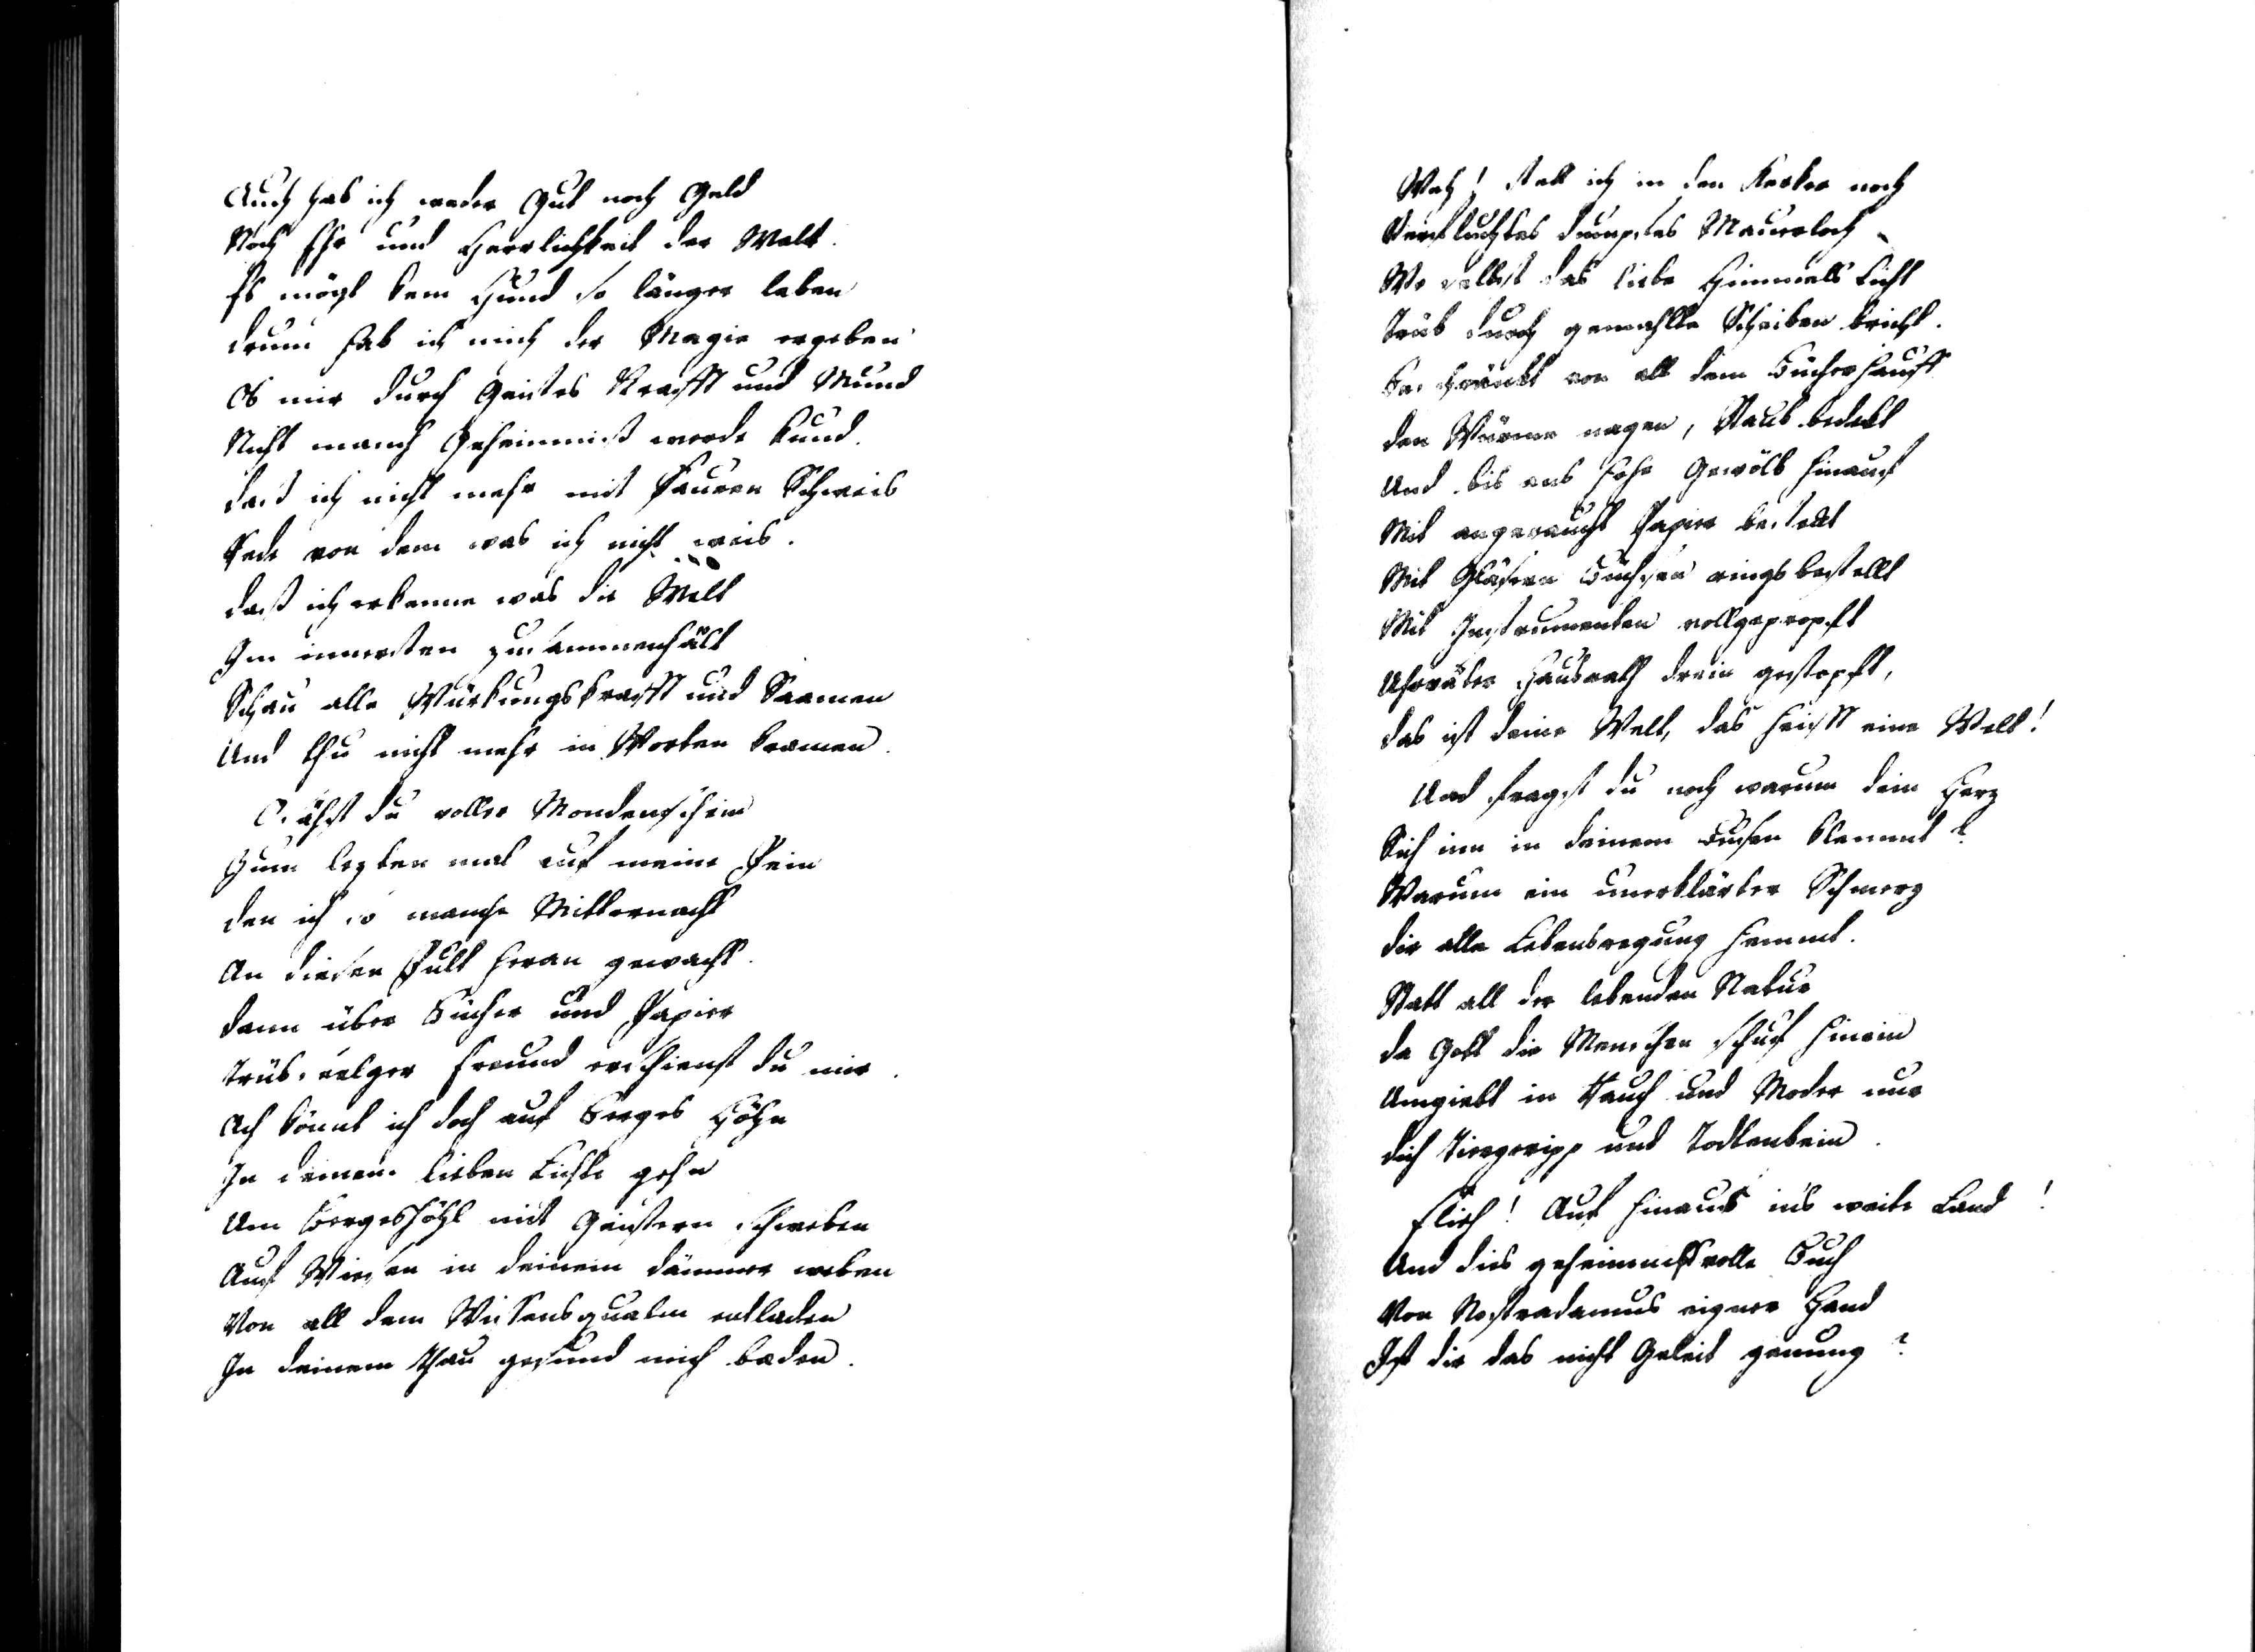 Auch hab ich weder Gut noch Geld
Noch Ehr und Herrlichkeit der Welt.
Es mögt kein Hund so länger leben
Drum hab ich mich der Magie ergeben
Ob mir durch Geistes Krafft und Mund
Nicht manch Geheimniß werde kund.
Daß ich nicht mehr mit sauren Schweis
Rede von dem was ich nicht weis.
Daß ich erkenne was die Welt
Im innersten zusammenhält
Schau alle Würkungskrafft und Saamen
Und thu nicht mehr in Worten kramen.
O sähst du voller Mondenschein
Zum lezten mal auf meine Pein
Den ich so manche Mitternacht
An diesen Pult heran gewacht.
Dann über Bücher und Papier
Trübseelger Freund erschienst du mir.
Ach könnt ich doch auf Berges Höhn
In deinem lieben Lichte gehn
Um Bergeshöhl mit Geistern schweben
Auf Wiesen in deinem Dämmer weben
Von all dem Wissensqualm entladen
In deinem Thau gesund mich baden.
Weh! steck ich in den Kerker noch
Verfluchtes dumpfes Mauerloch
Wo selbst das liebe Himmels Licht
Trüb durch gemahlte Scheiben bricht.
Beschränkt von all dem Bücherhauff
Den Würme nagen, Staub bedeckt
Und bis ans hohe Gewölb hinauf
Mit angeraucht Papier besteckt
Mit Gläsern Büchsen rings bestellt
Mit Instrumenten vollgepropft
Uhrväter Hausrath drein gestopft,
Das ist deine Welt, das heisst eine Welt!
Und fragst du noch warum dein Herz
Sich inn in deinem Busen klemmt?
Warum ein unerklärter Schmerz
Dir alle Lebensregung hemmt.
Statt all der lebenden Natur
Da Gott die Menschen schuf hinein
Umgiebt in Rauch und Moder nur
Dich Tiergeripp und Todtenbein.
Flieh! Auf hinaus in's weite Land!
Und dies geheimnißvolle Buch
Von Nostradamus eigner Hand
Ist dir das nicht Geleit genung?